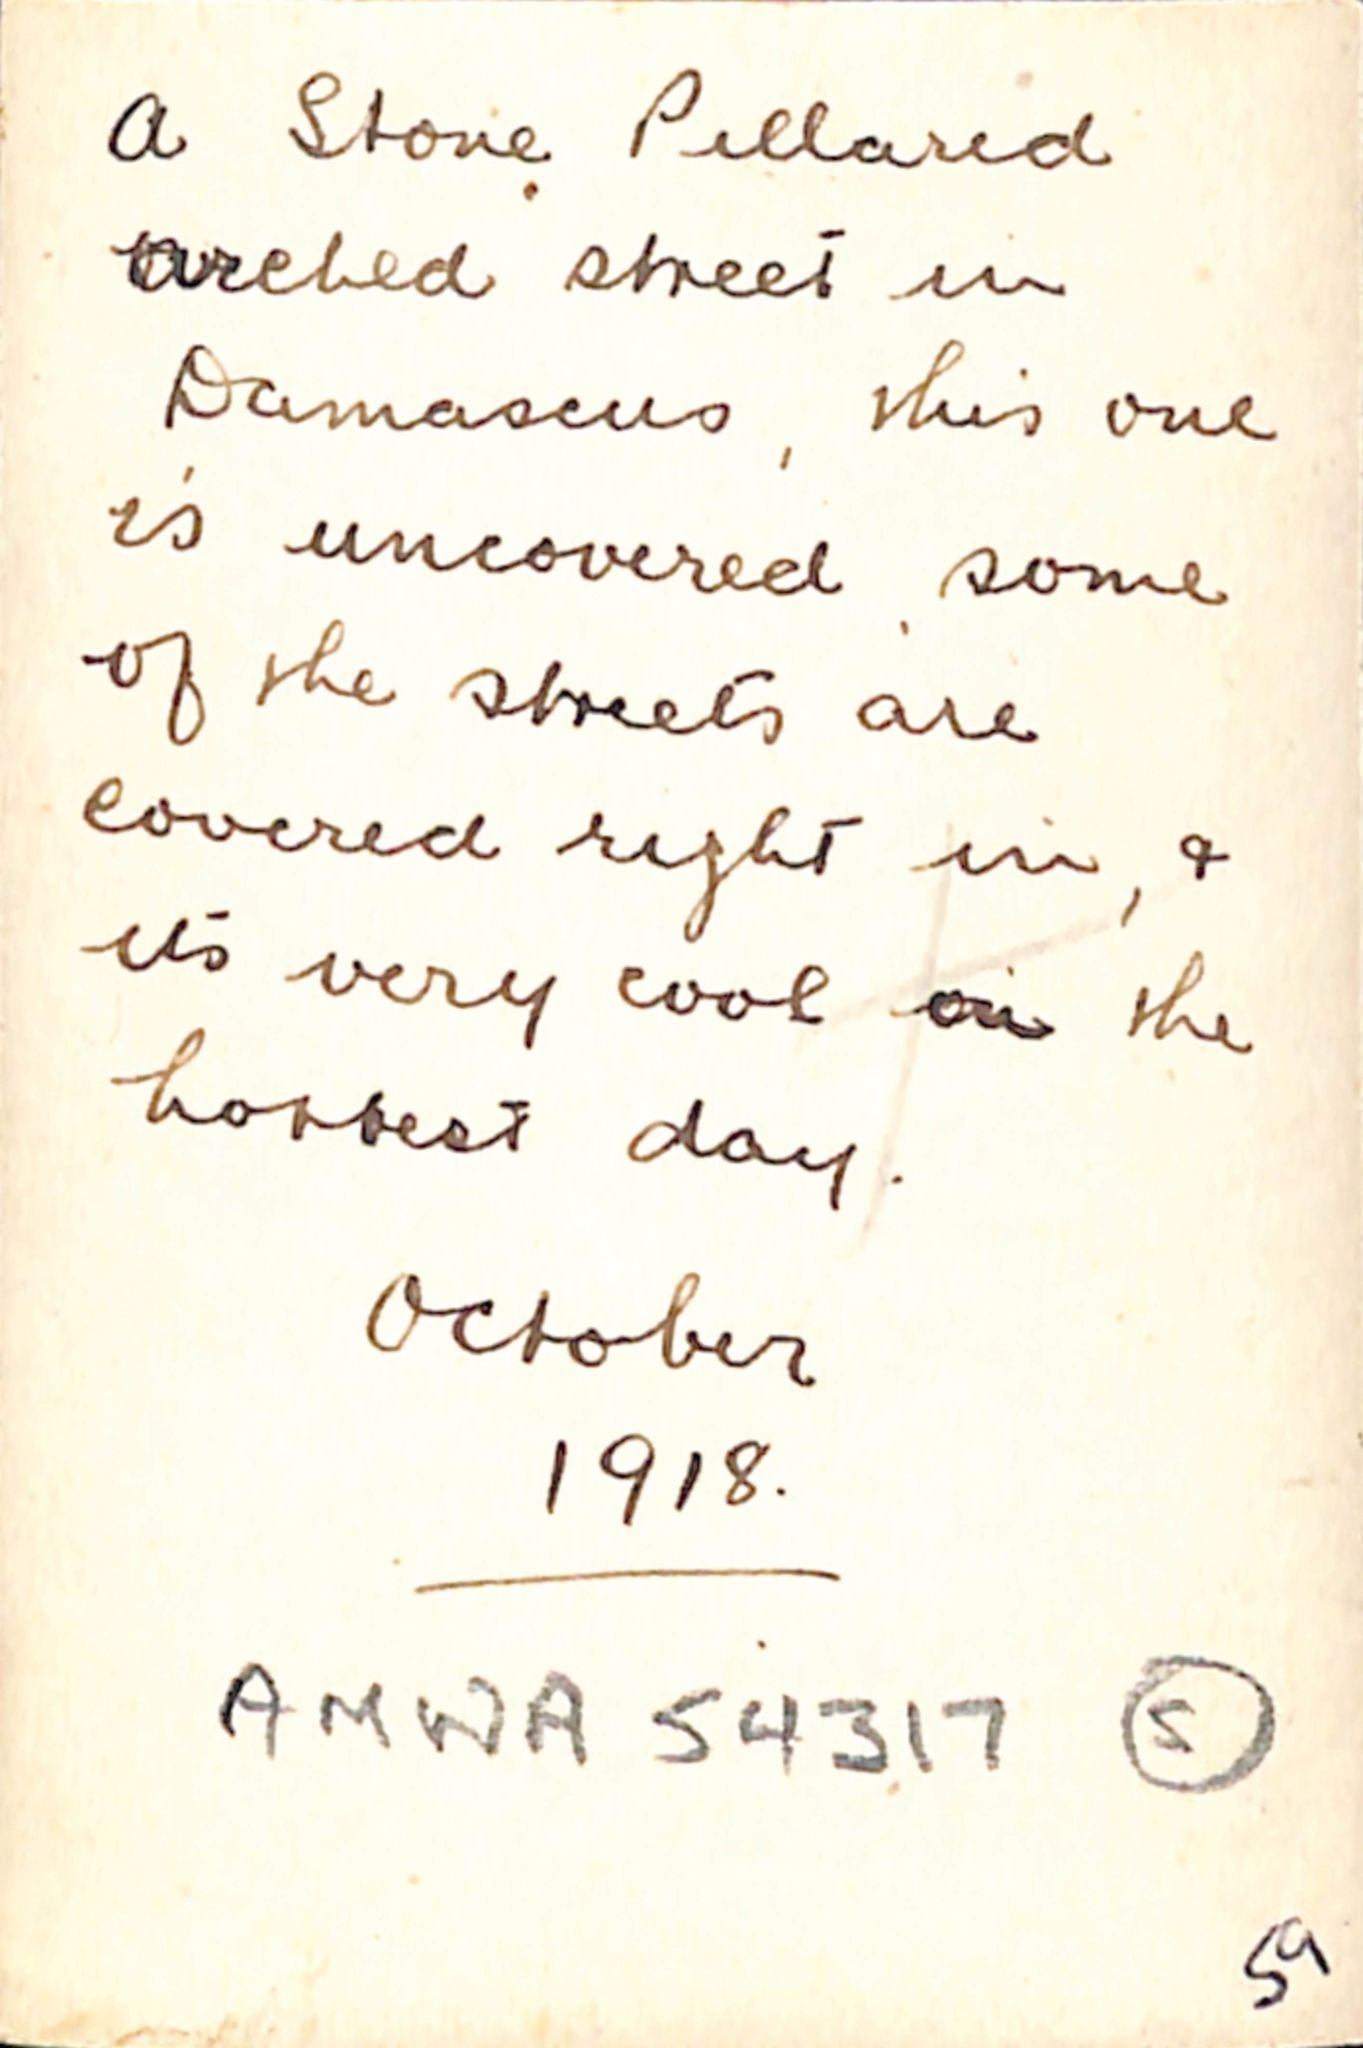 A Stone Pillared
arched street in
Damascus, this one
is uncovered some
of the streets are
covered right in, &
its very cool on the
hottest day.
October
1918.
AMWA 54317 5
59